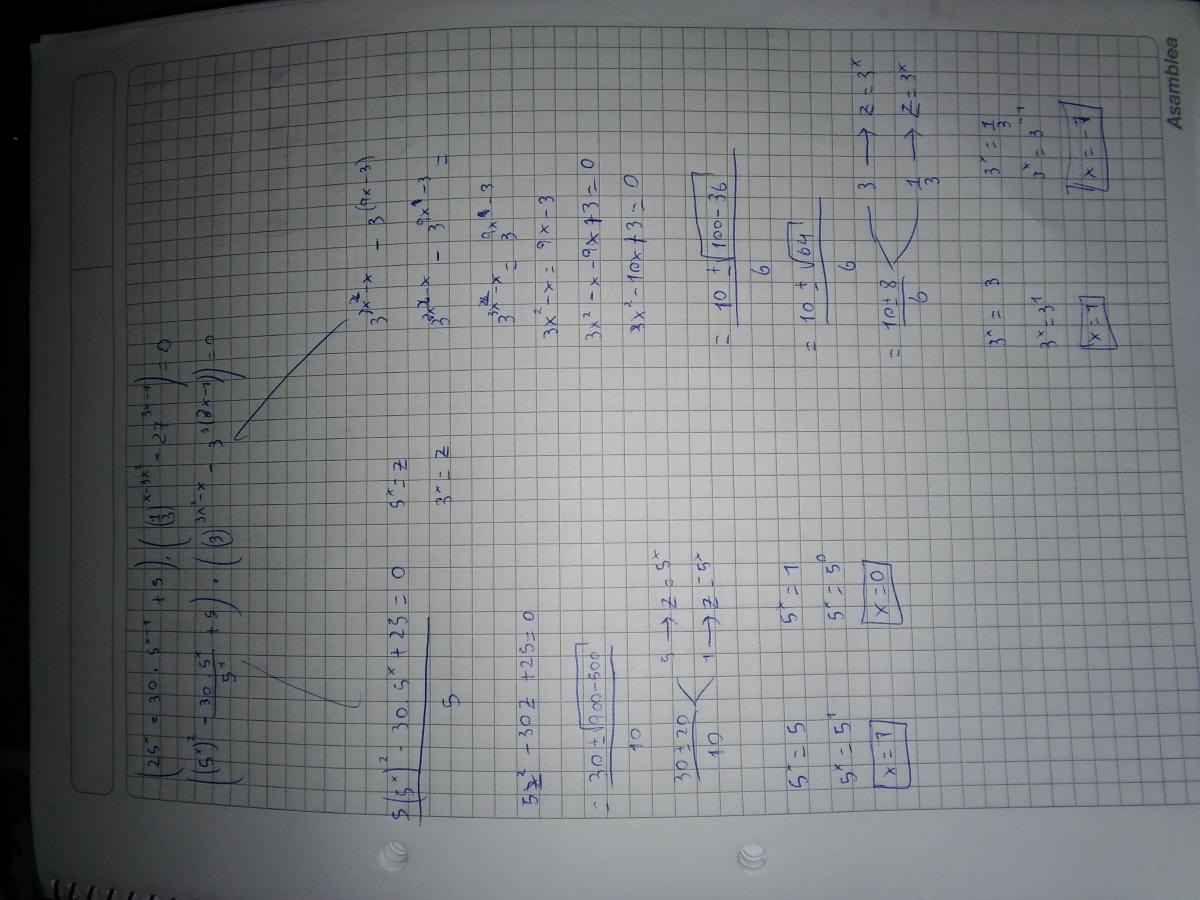 (25ˣ = 30 · 5ˣ⁻¹ + 5) · ((1/3)^(x-3x²) = 27^(3x-1)) = 0
((5ˣ)² - 30·5ˣ/5¹ + 5) · ((3)^(3x²-x) - 3^(3(3x-1))) = 0
5(5ˣ)² - 30·5ˣ + 25 = 0
5
5ˣ = z
3ˣ = z
5z² - 30z + 25 = 0
= 30 ± √900-500
10
30 ± 20
10
5 → z = 5ˣ
1 → z = 5ˣ
5ˣ = 5
5ˣ = 5¹
x = 1
5ˣ = 1
5ˣ = 5⁰
x = 0
3^(3x²-x) - 3^(9x-3)
3^(3x²-x) - 3^(9x-3) =
3^(3x²-x) = 3^(9x-3)
3x² - x = 9x - 3
3x² - x - 9x + 3 = 0
3x² - 10x + 3 = 0
= 10 ± √100-36
6
= 10 ± √64
6
= 10 ± 8
6
3 → z = 3ˣ
1/3 → z = 3ˣ
3ˣ = 3
3ˣ = 3¹
x = 1
3ˣ = 1/3
3ˣ = 3⁻¹
x = -1
Asamblea